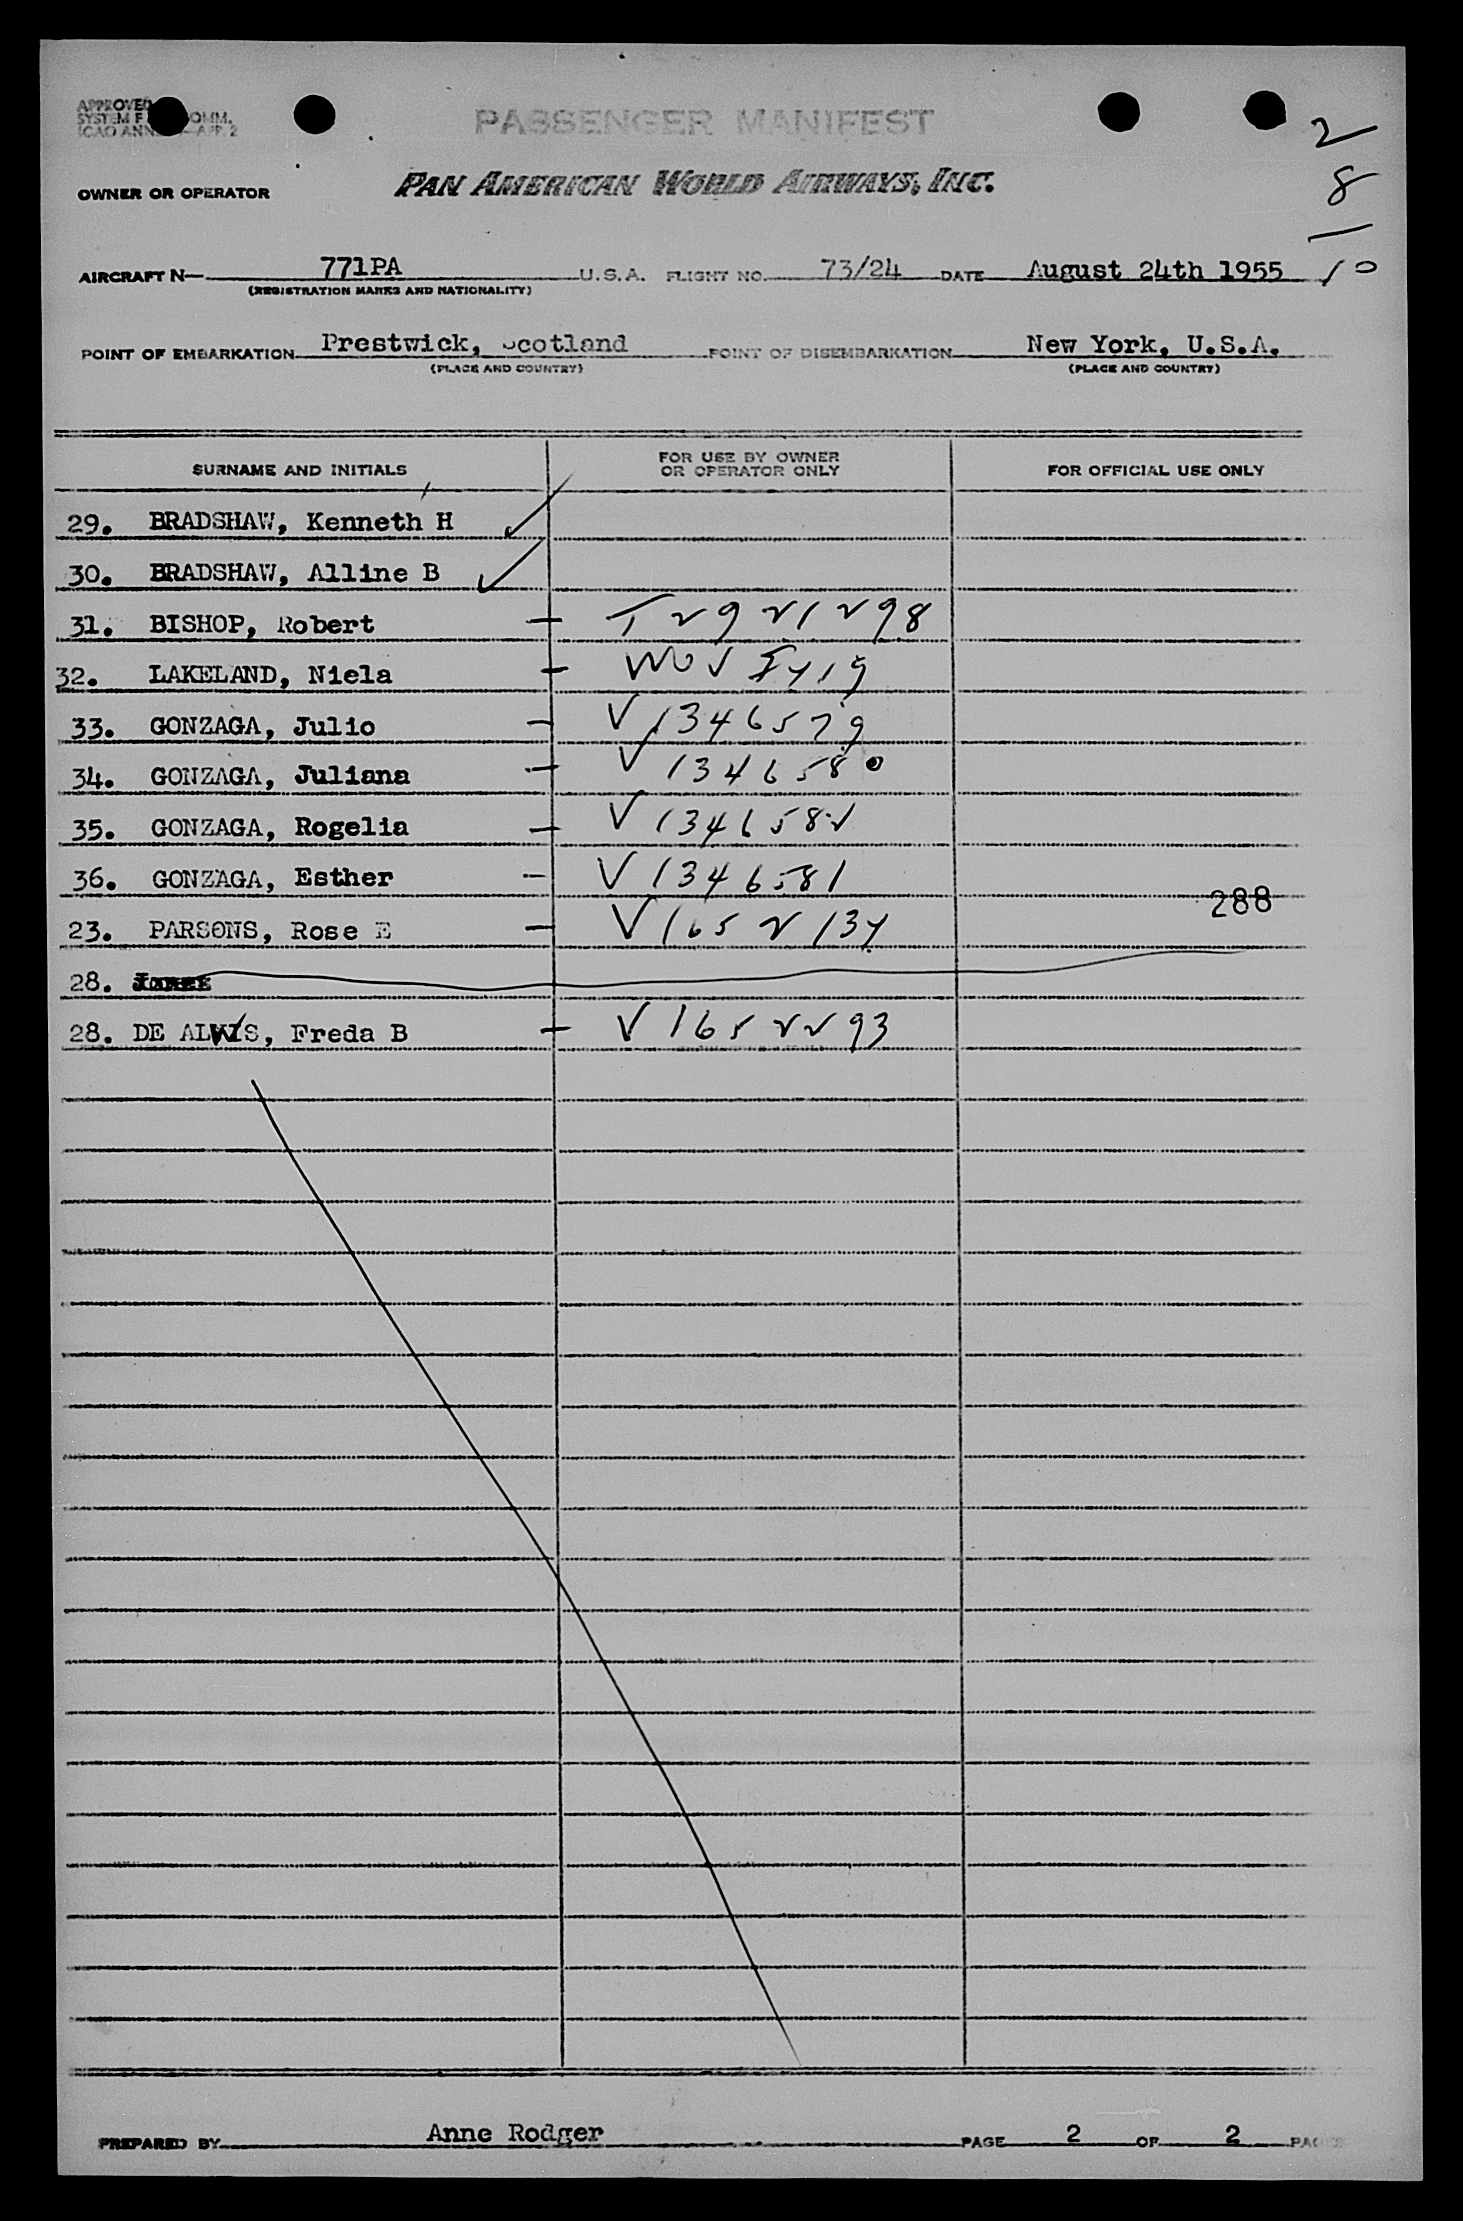 APPROVED
SYSTEM F OMM.
ICAO ANN APP. 2
PASSENGER MANIFEST
2
8
10
OWNER OR OPERATOR PAN AMERICAN WORLD AIRWAYS, INC.
AIRCRAFT N— 771PA U.S.A. FLIGHT NO. 73/24 DATE August 24th 1955
(REGISTRATION MARKS AND NATIONALITY)
POINT OF EMBARKATION Prestwick, Scotland POINT OF DISEMBARKATION New York, U.S.A.
(PLACE AND COUNTRY) (PLACE AND COUNTRY)
SURNAME AND INITIALS FOR USE BY OWNER OR OPERATOR ONLY FOR OFFICIAL USE ONLY
29. BRADSHAW, Kenneth H
30. BRADSHAW, Alline B
31. BISHOP, Robert — T2921298
32. LAKELAND, Niela —
33. GONZAGA, Julio — V1346579
34. GONZAGA, Juliana — V1346580
35. GONZAGA, Rogelia — V1346582
36. GONZAGA, Esther — V1346581
288
23. PARSONS, Rose E — V1652134
28.
28. DE ALWIS, Freda B — V1652293
PREPARED BY Anne Rodger PAGE 2 OF 2 PAGES